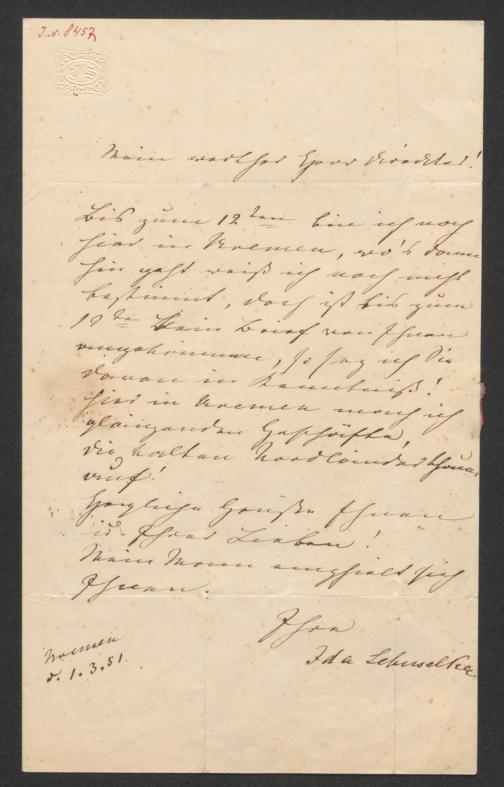 J.N. 8457
Mein werther Herr Direktor!
Bis zum 12ten bin ich noch
hier in Bremen, wo's dann
hin geht weiß ich noch nicht
bestimmt, doch ist bis zum
10te kein Brief von Ihnen
angekommen, so sez ich Sie
davon in Kenntniß!
Hier in Bremen mach ich
glänzenden Geschäfte,
die kalten Nordländer thauen
auf!
Herzliche Grüße Ihnen
u. Ihren Lieben!
Mein Mann empfielt sich
Ihnen.
Ihre
Ida
Bremen
d. 1.3.81.